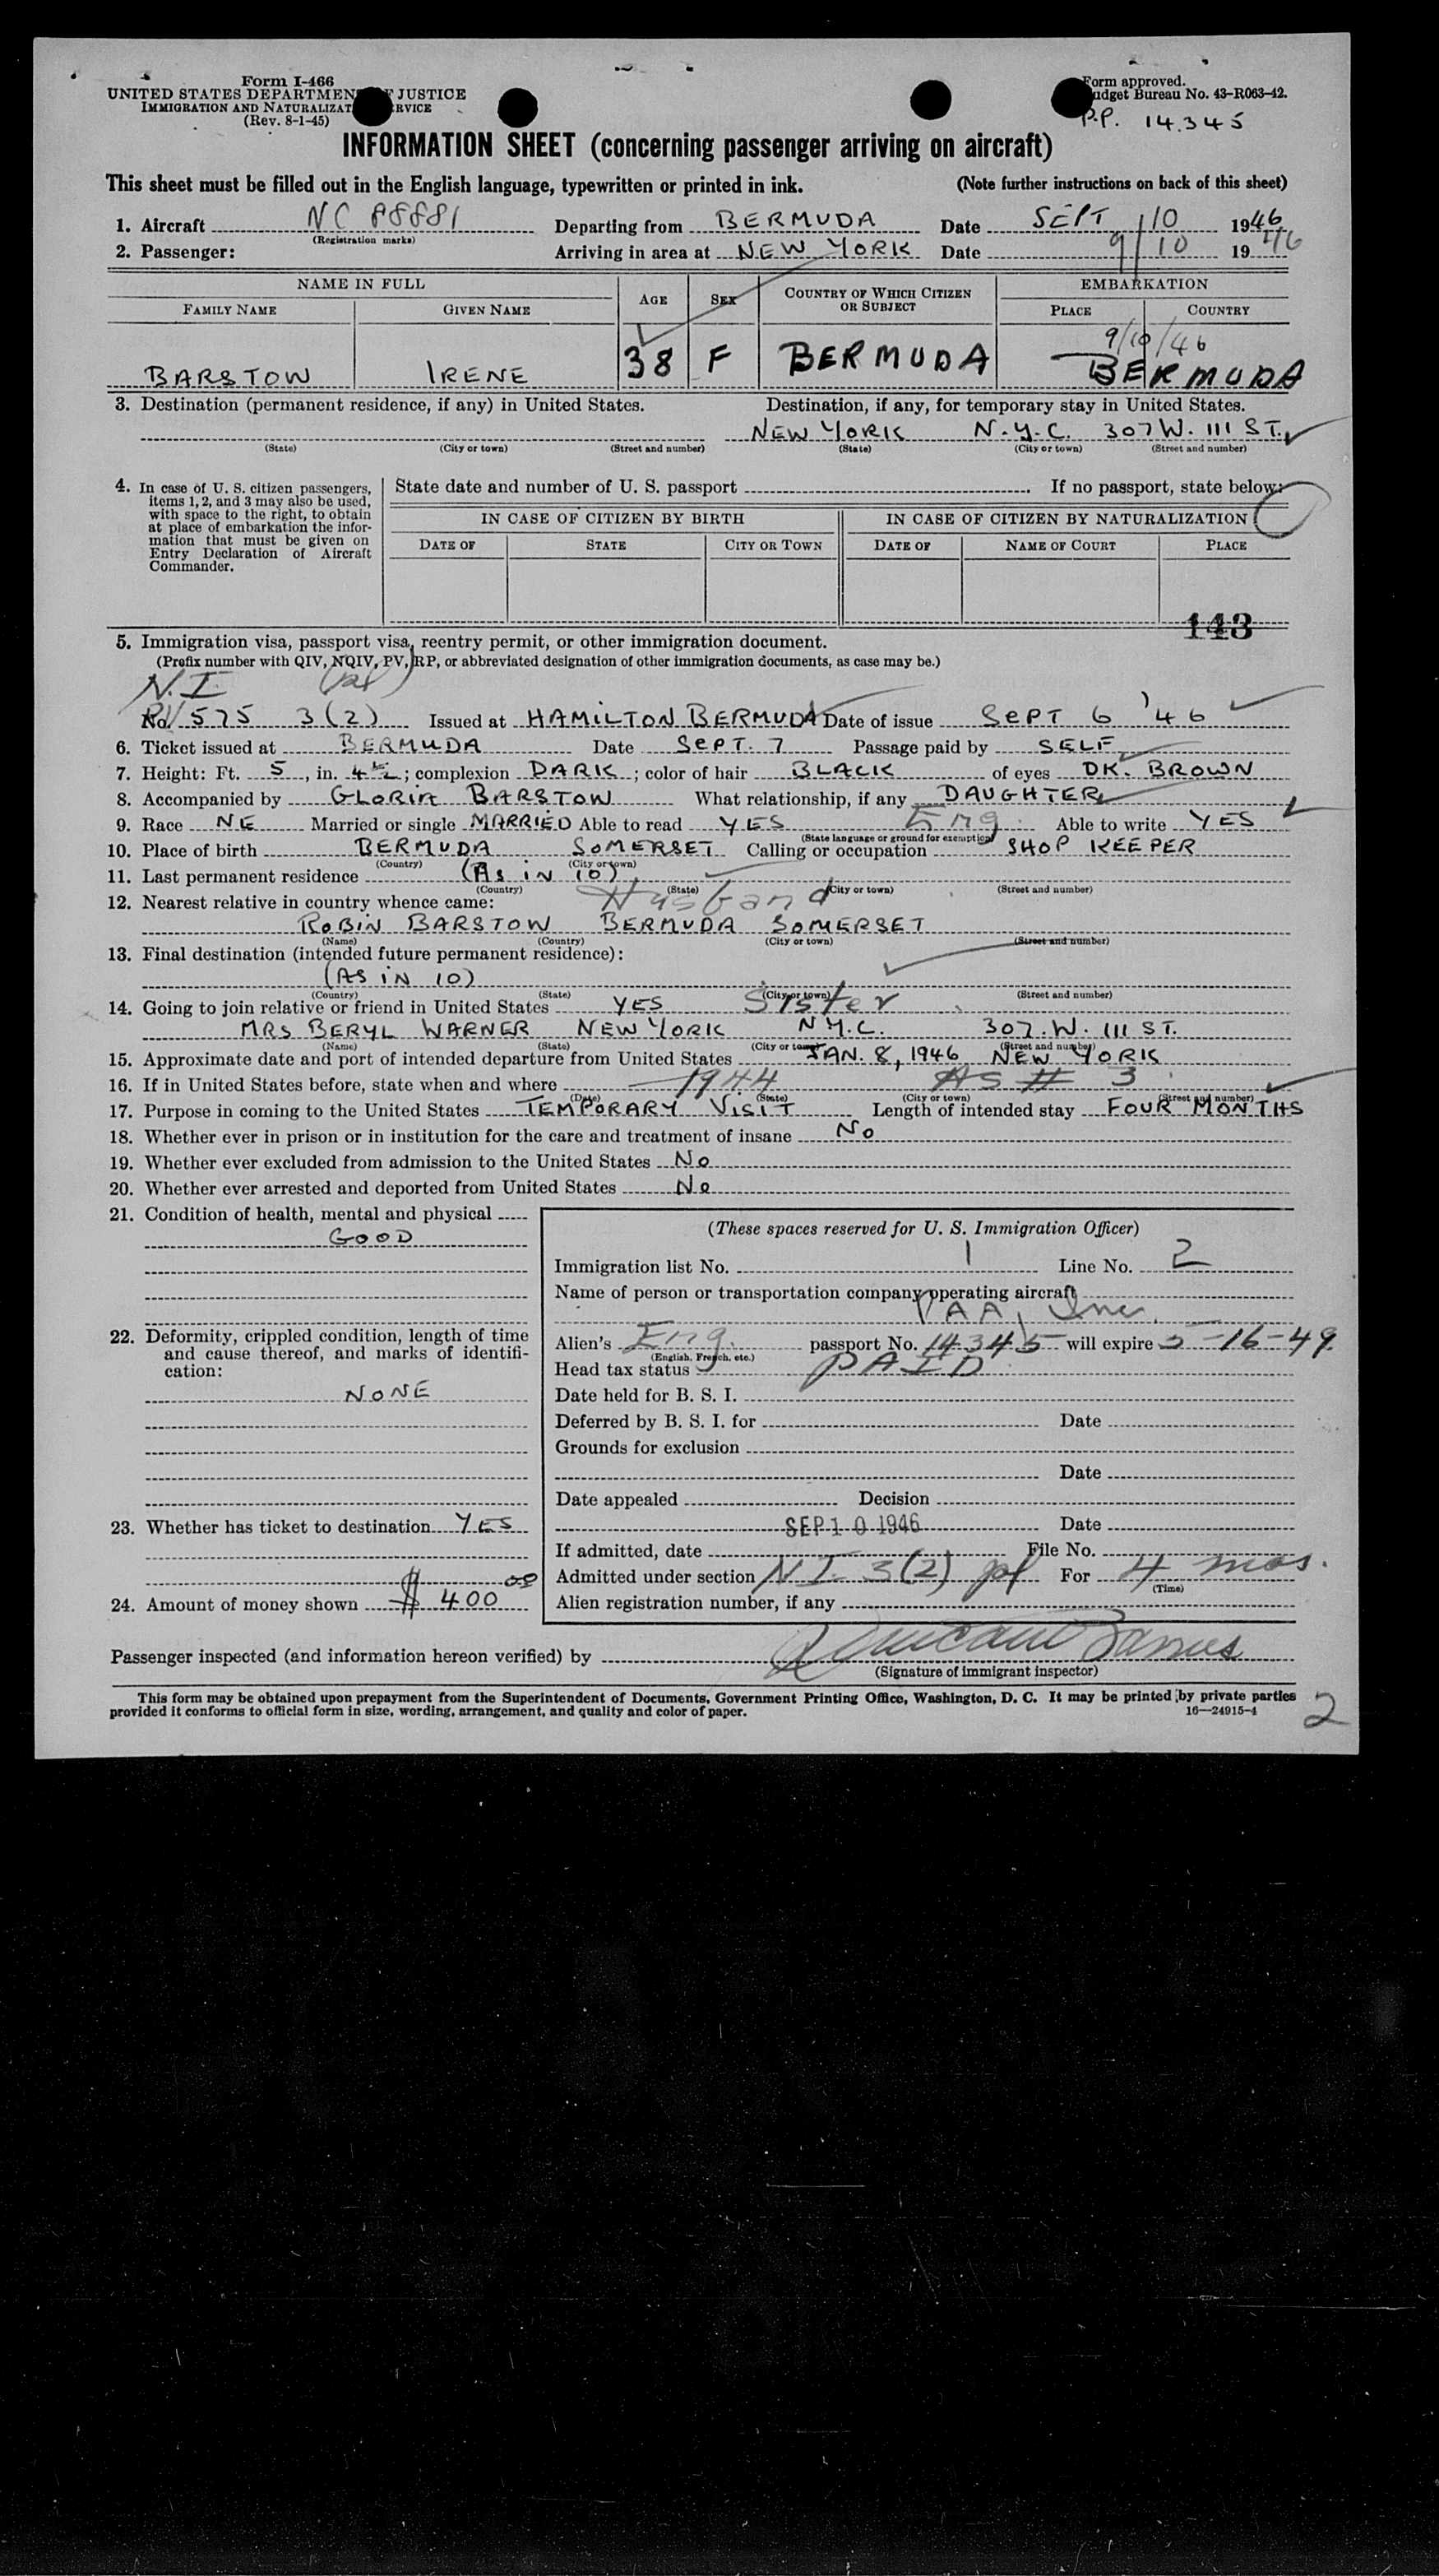 Form I-466
UNITED STATES DEPARTMENT JUSTICE
IMMIGRATION AND NATURALIZAT RVICE
(Rev. 8-1-45)
Form approved.
Budget Bureau No. 43-R063-42.
P.P. 14.345
INFORMATION SHEET (concerning passenger arriving on aircraft)
This sheet must be filled out in the English language, typewritten or printed in ink. (Note further instructions on back of this sheet)
1. Aircraft NC 88881 Departing from BERMUDA Date SEPT 10 1946
(Registration marks)
2. Passenger: Arriving in area at NEW YORK Date 9/10 1946
NAME IN FULL AGE SEX COUNTRY OF WHICH CITIZEN OR SUBJECT EMBARKATION
FAMILY NAME GIVEN NAME PLACE COUNTRY
9/10/46
BARSTOW IRENE 38 F BERMUDA BERMUDA
3. Destination (permanent residence, if any) in United States. Destination, if any, for temporary stay in United States.
NEW YORK N.Y.C. 307 W. 111 ST.
(State) (City or town) (Street and number) (State) (City or town) (Street and number)
4. In case of U. S. citizen passengers, items 1, 2, and 3 may also be used, with space to the right, to obtain at place of embarkation the information that must be given on Entry Declaration of Aircraft Commander.
State date and number of U. S. passport If no passport, state below:
IN CASE OF CITIZEN BY BIRTH IN CASE OF CITIZEN BY NATURALIZATION
DATE OF STATE CITY OR TOWN DATE OF NAME OF COURT PLACE
143
5. Immigration visa, passport visa, reentry permit, or other immigration document.
(Prefix number with QIV, NQIV, PV, RP, or abbreviated designation of other immigration documents, as case may be.)
N.I.
No. 575 3(2) Issued at HAMILTON BERMUDA Date of issue SEPT 6 '46
6. Ticket issued at BERMUDA Date SEPT. 7 Passage paid by SELF
7. Height: Ft. 5, in. 4½; complexion DARK; color of hair BLACK of eyes DK. BROWN
8. Accompanied by GLORIA BARSTOW What relationship, if any DAUGHTER
9. Race NE Married or single MARRIED Able to read YES Eng. Able to write YES
(State language or ground for exemption)
10. Place of birth BERMUDA SOMERSET Calling or occupation SHOP KEEPER
(Country) (City or town)
11. Last permanent residence (AS IN 10)
(Country) (State) (City or town) (Street and number)
12. Nearest relative in country whence came: Husband
ROBIN BARSTOW BERMUDA SOMERSET
(Name) (Country) (City or town) (Street and number)
13. Final destination (intended future permanent residence):
(AS IN 10)
(Country) (State) (City or town) (Street and number)
14. Going to join relative or friend in United States YES Sister
MRS BERYL WARNER NEW YORK N.Y.C. 307. W. 111 ST.
(Name) (State) (City or town) (Street and number)
15. Approximate date and port of intended departure from United States JAN. 8, 1946 NEW YORK
16. If in United States before, state when and where 1944 AS # 3
(Date) (State) (City or town) (Street and number)
17. Purpose in coming to the United States TEMPORARY VISIT Length of intended stay FOUR MONTHS
18. Whether ever in prison or in institution for the care and treatment of insane NO
19. Whether ever excluded from admission to the United States NO
20. Whether ever arrested and deported from United States NO
21. Condition of health, mental and physical
GOOD
22. Deformity, crippled condition, length of time and cause thereof, and marks of identification:
NONE
23. Whether has ticket to destination YES
24. Amount of money shown $ 400 00
(These spaces reserved for U. S. Immigration Officer)
Immigration list No. 1 Line No. 2
Name of person or transportation company operating aircraft
PAA, Inc.
Alien's Eng. passport No. 14345 will expire 5-16-49.
(English, French, etc.)
Head tax status PAID
Date held for B. S. I.
Deferred by B. S. I. for Date
Grounds for exclusion
Date
Date appealed Decision
SEP 10 1946 Date
If admitted, date File No.
Admitted under section N I. 3(2) pf For 4 mos.
(Time)
Alien registration number, if any
Passenger inspected (and information hereon verified) by
(Signature of immigrant inspector)
This form may be obtained upon prepayment from the Superintendent of Documents, Government Printing Office, Washington, D. C. It may be printed by private parties
provided it conforms to official form in size, wording, arrangement, and quality and color of paper. 16—24915-4
2